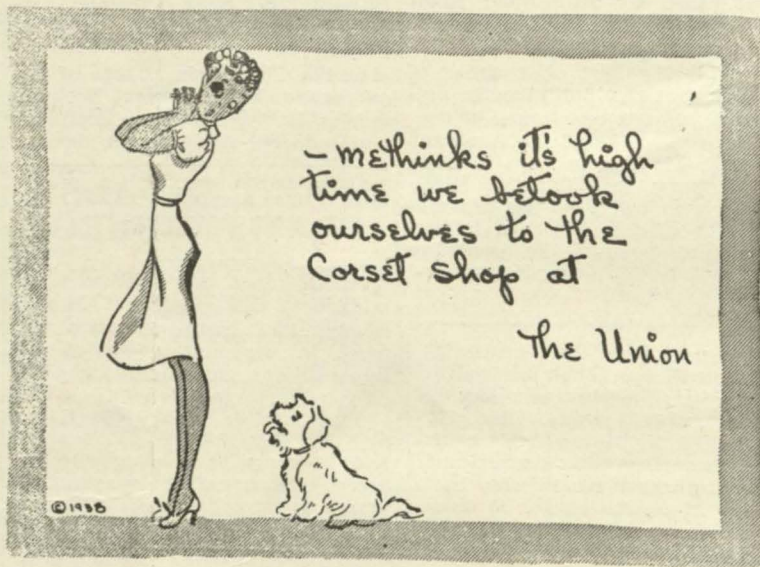 – methinks it's high
time we betook
ourselves to the
Corset shop at
The Union
©1938